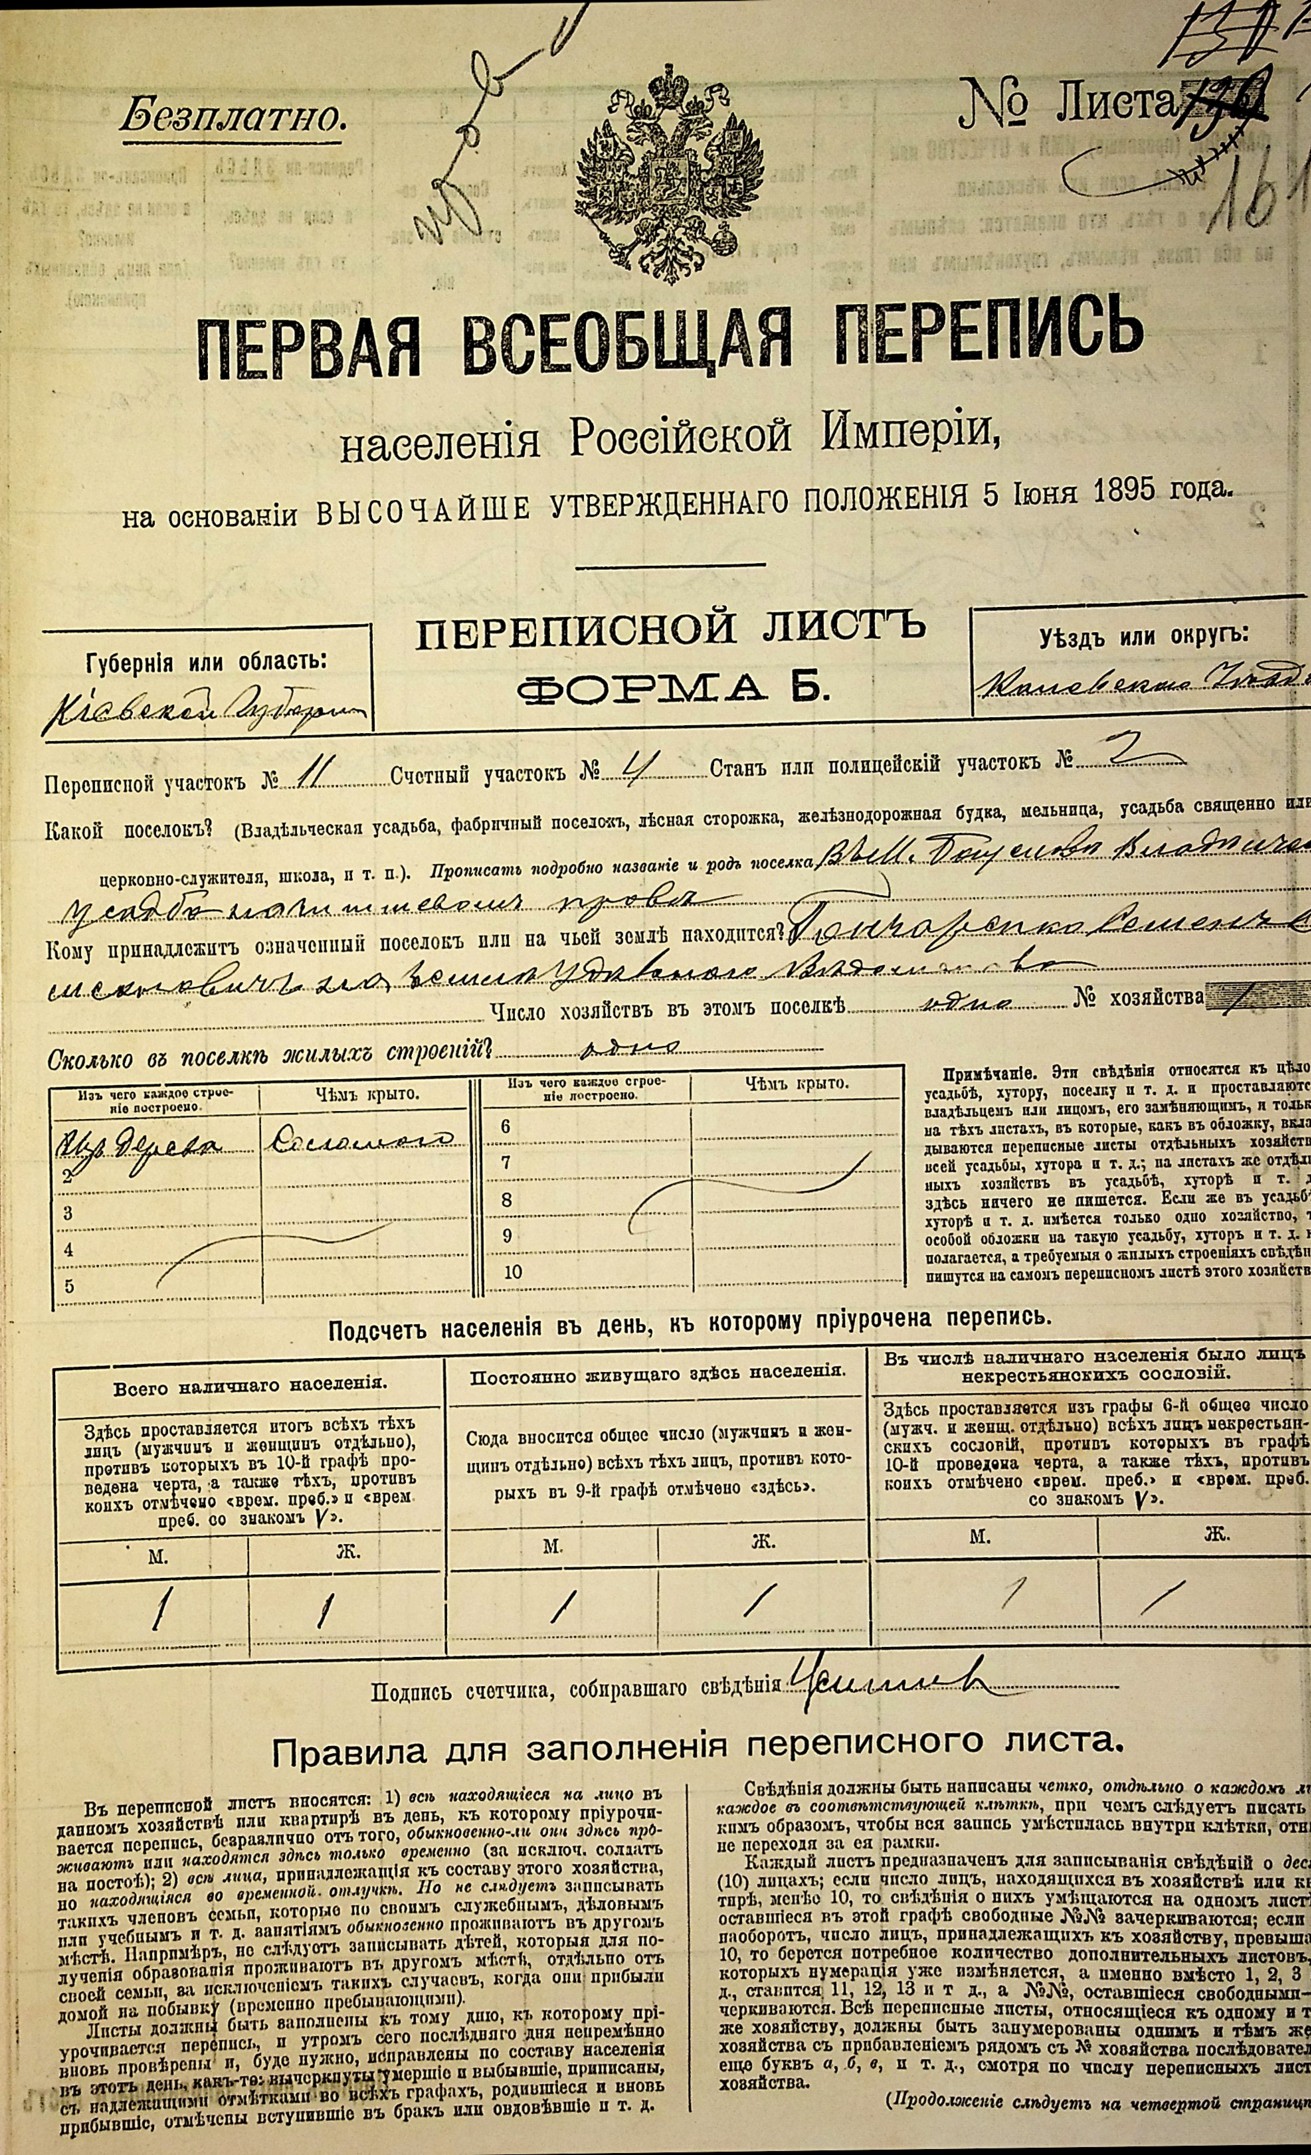 Безплатно.
№ Листа
161
ПЕРВАЯ ВСЕОБЩАЯ ПЕРЕПИСЬ
населенія Россійской Имперіи,
на основаніи ВЫСОЧАЙШЕ УТВЕРЖДЕННАГО ПОЛОЖЕНІЯ 5 Іюня 1895 года.
ПЕРЕПИСНОЙ ЛИСТЪ
ФОРМА Б.
Губернія или область:
Кіевской Губерніи
Уѣздъ или округъ:
Каневскаго
Переписной участокъ № 11 Счетный участокъ № 4 Станъ или полицейскій участокъ № 2
Какой поселокъ? (Владѣльческая усадьба, фабричный поселокъ, лѣсная сторожка, желѣзнодорожная будка, мельница, усадьба священно или
церковно-служителя, школа, и т. п.). Прописать подробно названіе и родъ поселка Въ М.
усадьба правѣ
Кому принадлежитъ означенный поселокъ или на чьей землѣ находится? Гончаренко
на землѣ Удѣльнаго Вѣдомства
Число хозяйствъ въ этомъ поселкѣ одно № хозяйства 1
Сколько въ поселкѣ жилыхъ строеній? одно
Изъ чего каждое строе-
ніе построено.
Чѣмъ крыто.
Изъ чего каждое строе-
ніе построено.
Чѣмъ крыто.
Изъ дерева Соломою 6
2 7
3 8
4 9
5 10
Примѣчаніе. Эти свѣдѣнія относятся къ цѣло
усадьбѣ, хутору, поселку и т. д. и проставляютс
владѣльцемъ или лицомъ, его замѣняющимъ, и тольк
на тѣхъ листахъ, въ которые, какъ въ обложку, вкла
дываются переписные листы отдѣльныхъ хозяйств
всей усадьбы, хутора и т. д.; на листахъ же отдѣл
ныхъ хозяйствъ въ усадьбѣ, хуторѣ и т. д
здѣсь ничего не пишется. Если же въ усадьб
хуторѣ и т. д. имѣется только одно хозяйство, т
особой обложки на такую усадьбу, хуторъ и т. д. н
полагается, а требуемыя о жилыхъ строеніяхъ свѣдѣн
пишутся на самомъ переписномъ листѣ этого хозяйств
Подсчетъ населенія въ день, къ которому пріурочена перепись.
Всего наличнаго населенія.
Здѣсь проставляется итогъ всѣхъ тѣхъ
лицъ (мужчинъ и женщинъ отдѣльно),
противъ которыхъ въ 10-й графѣ про-
ведена черта, а также тѣхъ, противъ
коихъ отмѣчено «врем. преб.» и «врем.
преб. со знакомъ V».
Постоянно живущаго здѣсь населенія.
Сюда вносится общее число (мужчинъ и жен-
щинъ отдѣльно) всѣхъ тѣхъ лицъ, противъ кото-
рыхъ въ 9-й графѣ отмѣчено «здѣсь».
Въ числѣ наличнаго населенія было лицъ
некрестьянскихъ сословій.
Здѣсь проставляется изъ графы 6-й общее число
(мужч. и женщ. отдѣльно) всѣхъ лицъ некрестьян-
скихъ сословій, противъ которыхъ въ графѣ
10-й проведена черта, а также тѣхъ, противъ
коихъ отмѣчено «врем. преб.» и «врем. преб.
со знакомъ V».
М. Ж. М. Ж. М. Ж.
1 1 1 1 1 1
Подпись счетчика, собиравшаго свѣдѣнія
Правила для заполненія переписного листа.
Въ переписной листъ вносятся: 1) всѣ находящіеся на лицо въ
данномъ хозяйствѣ или квартирѣ въ день, къ которому пріурочи-
вается перепись, безразлично отъ того, обыкновенно-ли они здѣсь про-
живаютъ или находятся здѣсь только временно (за исключ. солдатъ
на постоѣ); 2) всѣ лица, принадлежащія къ составу этого хозяйства,
но находящіяся во временной отлучкѣ. Но не слѣдуетъ записывать
такихъ членовъ семьи, которые по своимъ служебнымъ, дѣловымъ
или учебнымъ и т. д. занятіямъ обыкновенно проживаютъ въ другомъ
мѣстѣ. Напримѣръ, не слѣдуетъ записывать дѣтей, которыя для по-
лученія образованія проживаютъ въ другомъ мѣстѣ, отдѣльно отъ
своей семьи, за исключеніемъ такихъ случаевъ, когда они прибыли
домой на побывку (временно пребывающими).
Листы должны быть заполнены къ тому дню, къ которому прі-
урочивается перепись, и утромъ сего послѣдняго дня непремѣнно
вновь провѣрены и, буде нужно, исправлены по составу населенія
въ этотъ день, какъ-то: вычеркнуты умершіе и выбывшіе, приписаны,
съ надлежащими отмѣтками во всѣхъ графахъ, родившіеся и вновь
прибывшіе, отмѣчены вступившіе въ бракъ или овдовѣвшіе и т. д.
Свѣдѣнія должны быть написаны четко, отдѣльно о каждомъ
каждое въ соотвѣтствующей клѣткѣ, при чемъ слѣдуетъ писать
кимъ образомъ, чтобы вся запись умѣстилась внутри клѣтки, отн
не переходя за ея рамки.
Каждый листъ предназначенъ для записыванія свѣдѣній о дес
(10) лицахъ; если число лицъ, находящихся въ хозяйствѣ или кв
тирѣ, менѣе 10, то свѣдѣнія о нихъ умѣщаются на одномъ лист
оставшіеся въ этой графѣ свободные №№ зачеркиваются; если
наоборотъ, число лицъ, принадлежащихъ къ хозяйству, превыша
10, то берется потребное количество дополнительныхъ листовъ,
которыхъ нумерація уже измѣняется, а именно вмѣсто 1, 2, 3
д., ставится 11, 12, 13 и т д., а №№, оставшіеся свободными
черкиваются. Всѣ переписные листы, относящіеся къ одному и т
же хозяйству, должны быть занумерованы однимъ и тѣмъ же
хозяйства съ прибавленіемъ рядомъ съ № хозяйства послѣдовател
еще буквъ а, б, в, и т. д., смотря по числу переписныхъ лист
хозяйства.
(Продолженіе слѣдуетъ на четвертой страниц